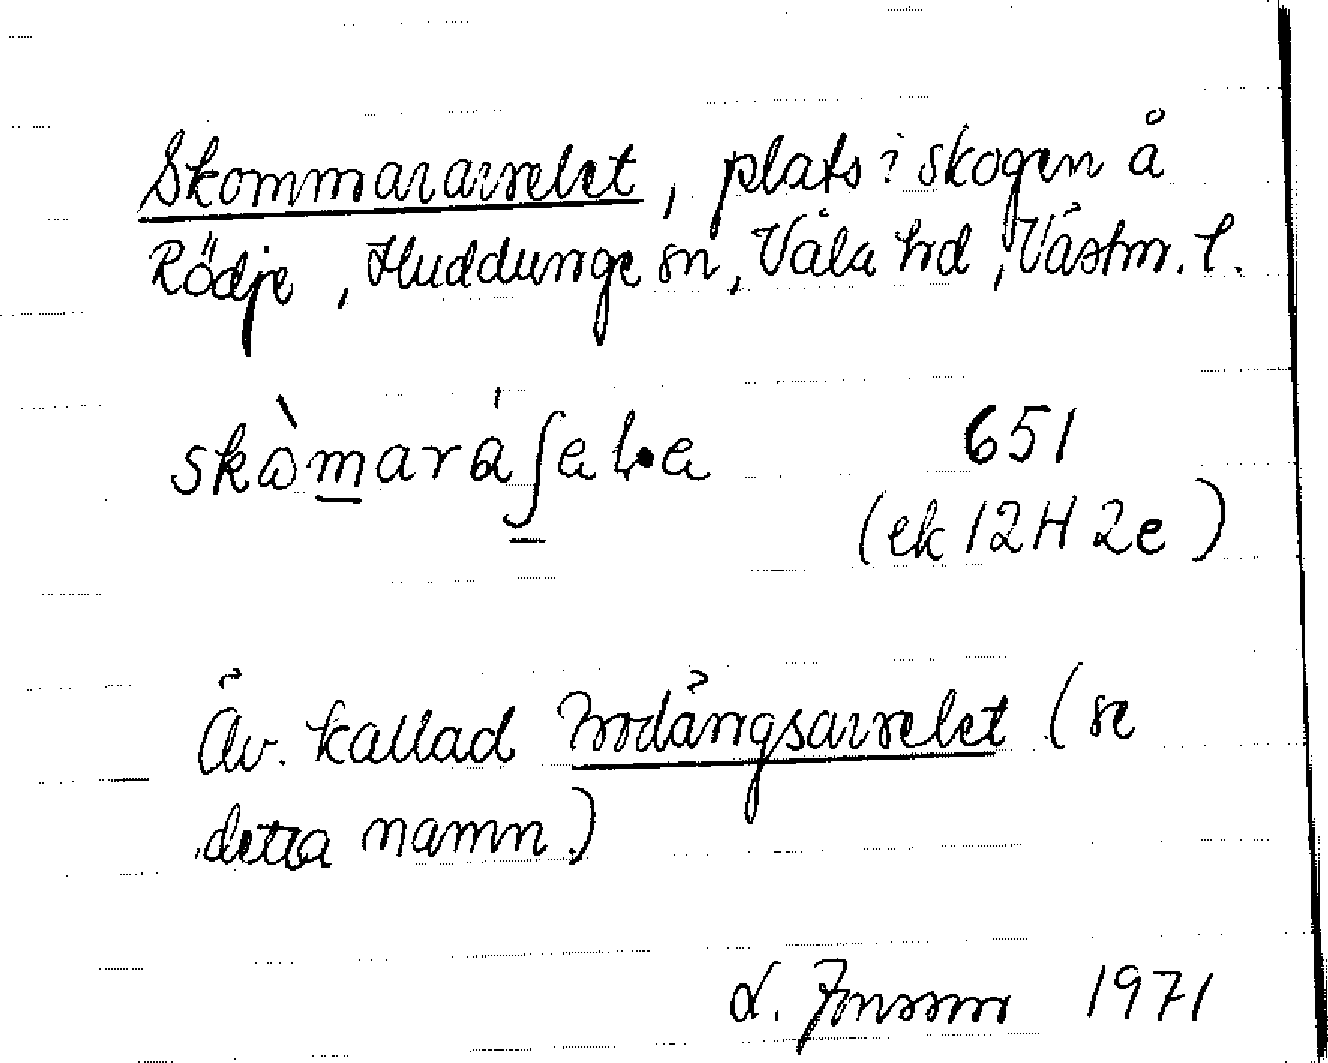 Skommararvelet, plats i skogen å
Rödje, Huddunge sn, Våla hd, Västm. l.
651
(ek 12H 2e)
Äv. kallad (se
detta namn.)
L. Jonsson 1971